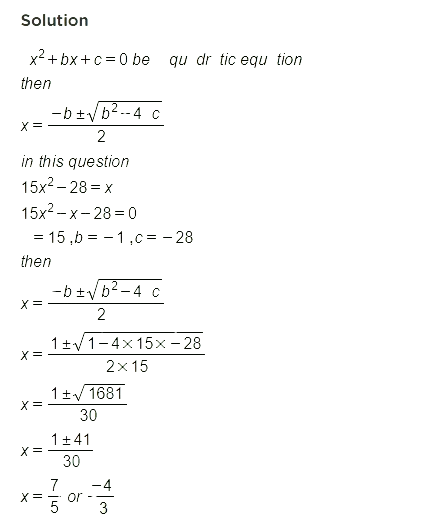 Solution
x² + bx + c = 0 be qu dr tic equ tion
then
x = (-b ± √(b² -- 4 c)) / 2
in this question
15x² − 28 = x
15x² − x − 28 = 0
= 15 ,b = − 1 ,c = − 28
then
x = (-b ± √(b² − 4 c)) / 2
x = (1 ± √(1 − 4 × 15 × − 28)) / (2 × 15)
x = (1 ± √1681) / 30
x = (1 ± 41) / 30
x = 7/5 or - −4/3